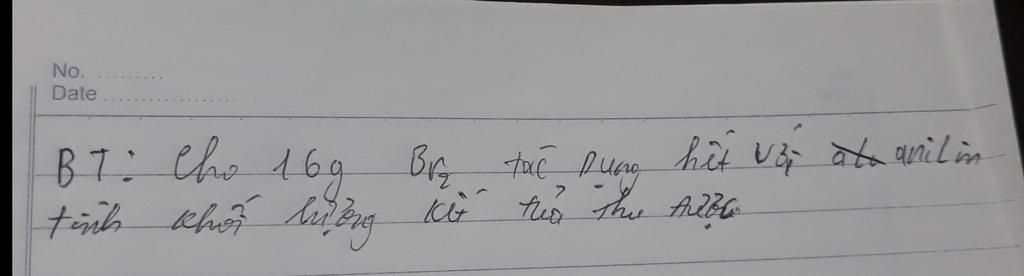 No. .........
Date ....................
BT: Cho 16g Br₂ tác dụng hết với anilin
tính khối lượng kết tủa thu được